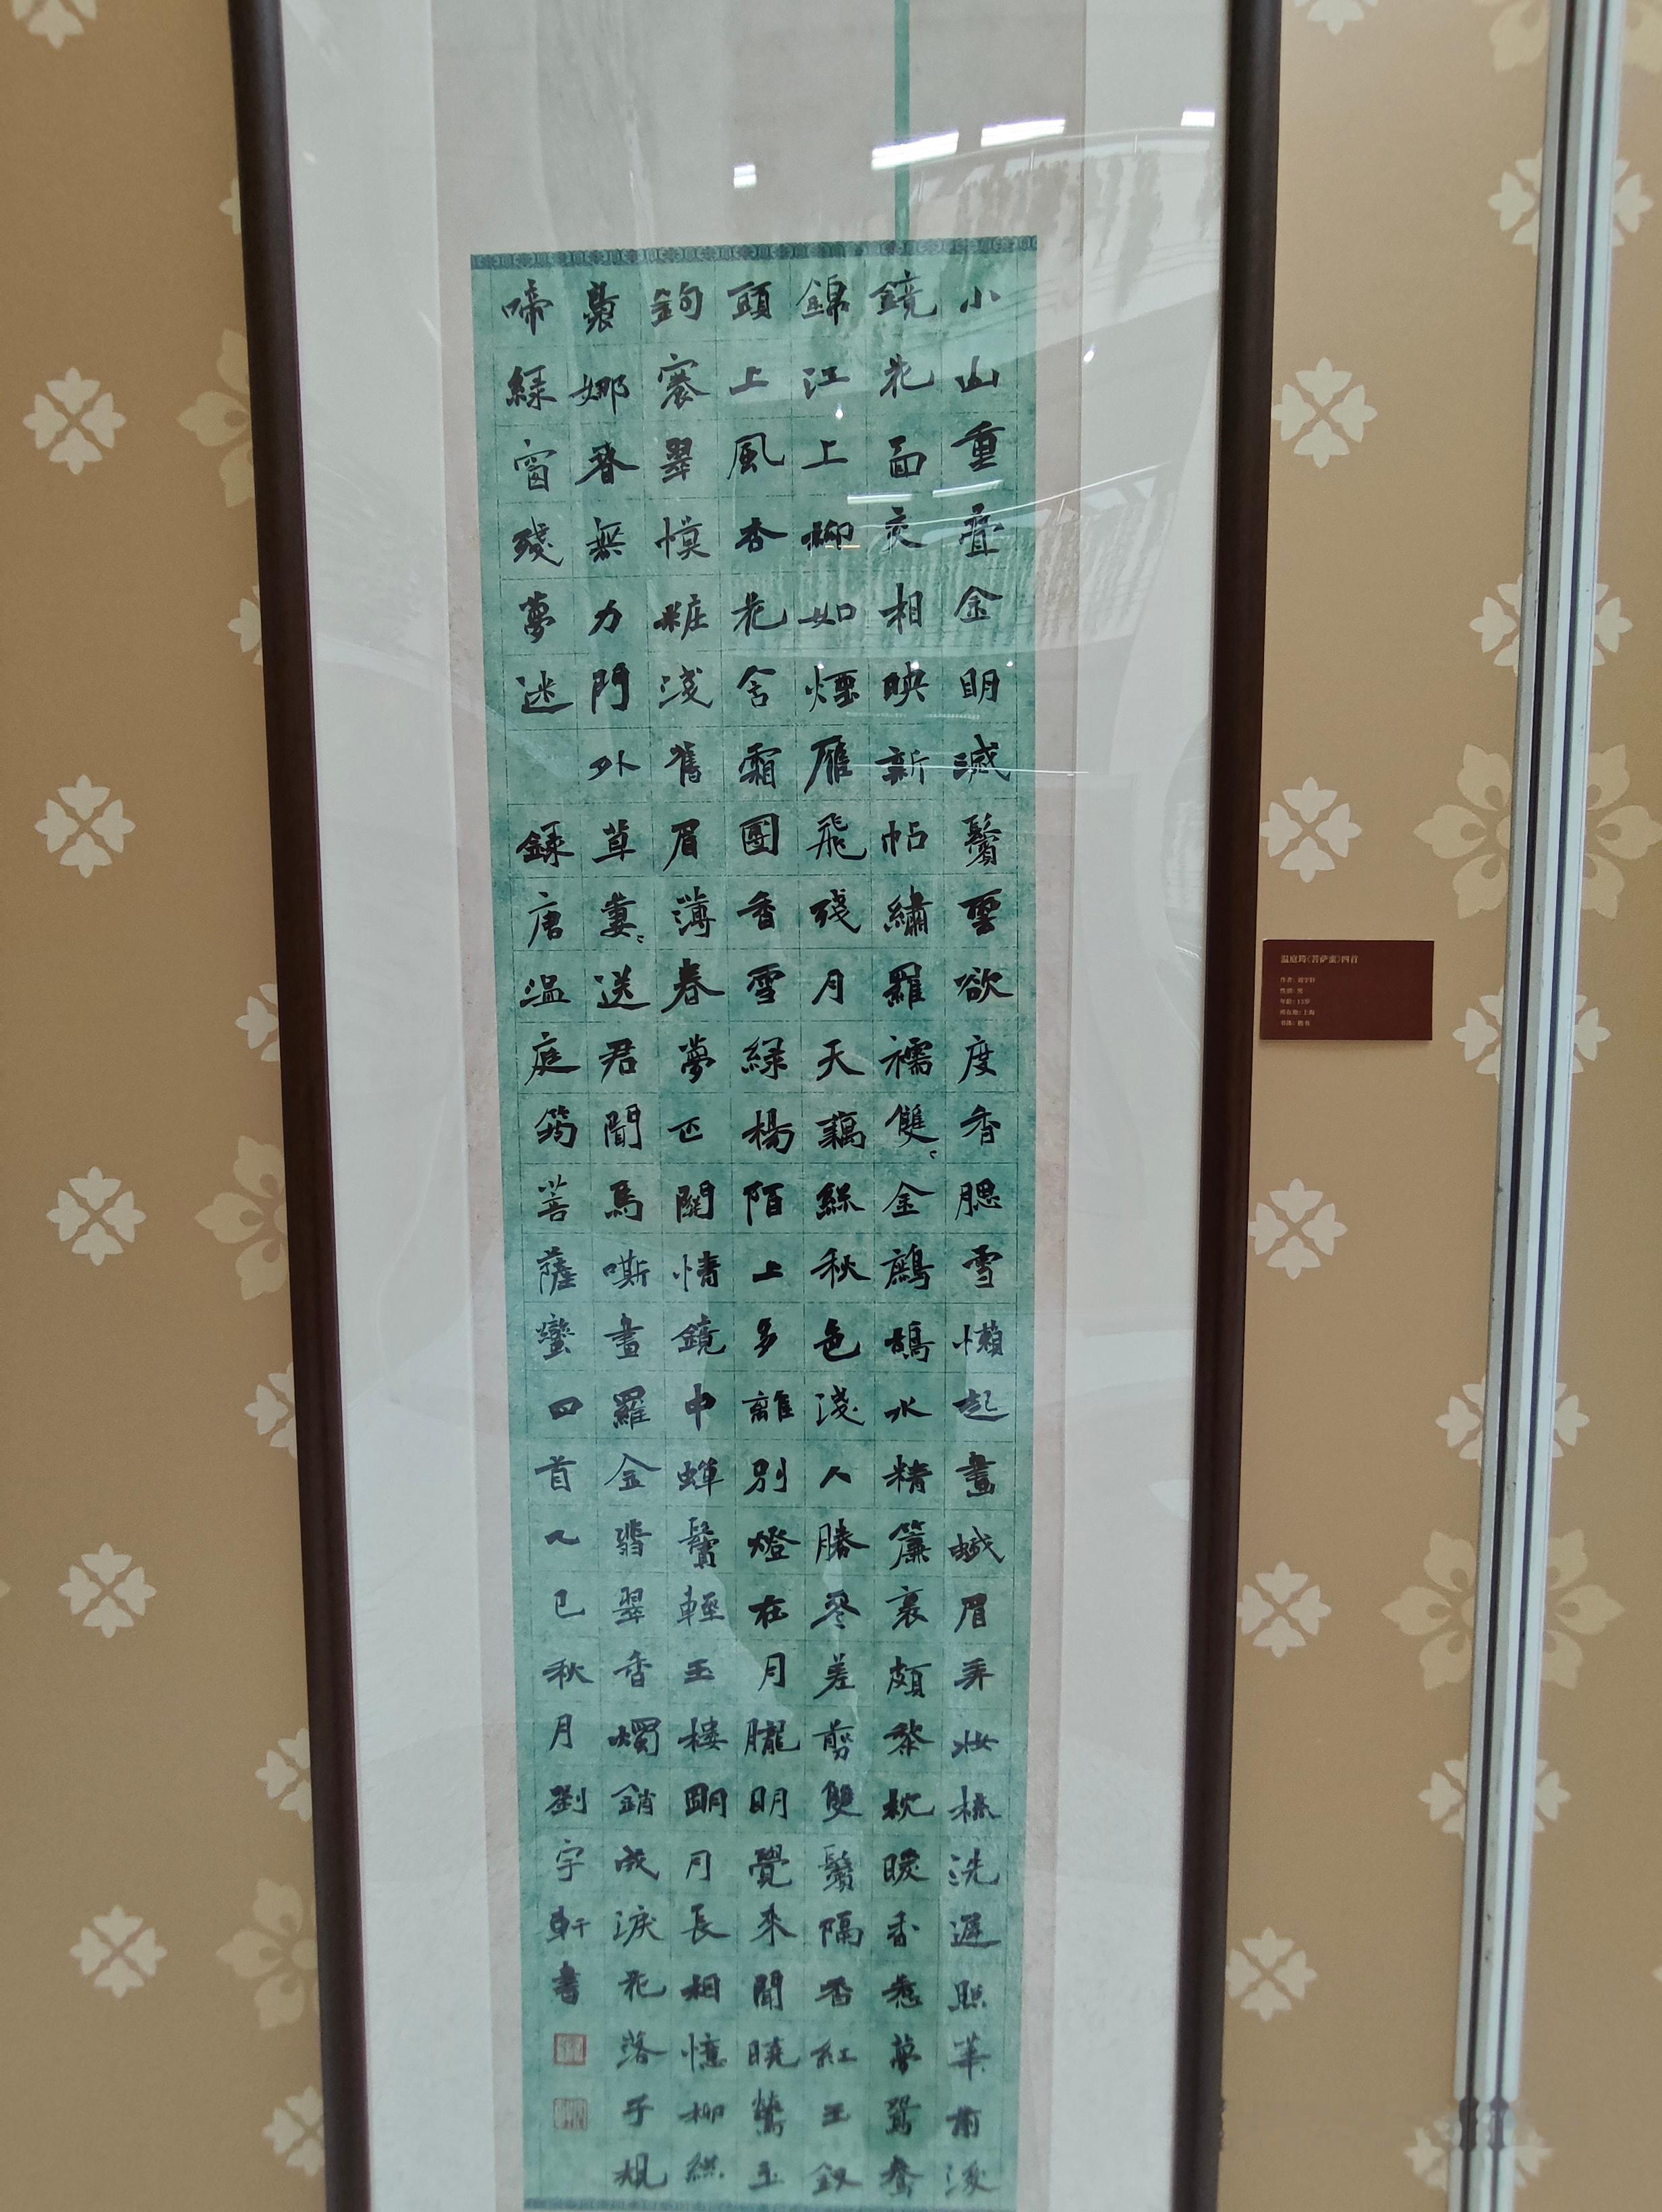 小山重疊金明滅鬢雲欲度香腮雪懶起畫蛾眉弄妝梳洗遲照華前後
鏡花面交相映新帖繡羅襦雙〻金鷓鴣水精簾裏頗黎枕暖香惹夢鴛鴦
錦江上柳如煙雁飛殘月天藕絲秋色淺人勝參差剪雙鬢隔香紅玉釵
頭上風杏花含霜團香雪綠楊陌上多離別燈在月朧明覺來聞曉鶯玉
鉤褰翠幙粧淺舊眉薄春夢正關情鏡中蟬鬢輕玉樓明月長相憶柳絲
裊娜春無力門外草萋〻送君聞馬嘶畫羅金翡翠香燭銷成淚花落子規
啼綠窗殘夢迷 錄唐温庭筠菩薩蠻四首乙巳秋月劉宇軒書
温庭筠《菩萨蛮》四首
作者：刘宇轩
性别：男
年龄：13岁
所在地：上海
书体：楷书